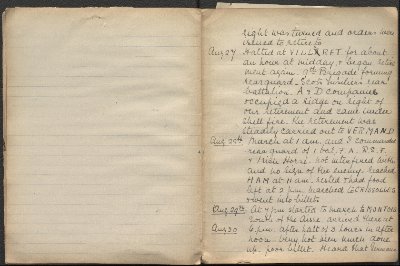 right was turned and orders were
issued to retire to
Aug 27 Halted at VILLERET for about
an hour at midday, & began retire
ment again. 9th Brigade forming
rearguard. Scots Fusiliers rear
battalion. A & D companies
occupied a ridge on right of
our retirement and came under
shell fire. The retirement was
steadily carried out to VERMAND
Aug 28th March at 1 am. and I commanded
rear guard of 1 Bn.
& Irish Horse. not interfered with
and no sign of the enemy. reached
HAM at 11 am. rested & had food
left at 2 pm. marched to CRISSOLLES
& went into billets
Aug 29th At 4 pm started to march to MONTOIS
south of the Aisne arrived there at
Aug 30 6 pm. after halt of 3 hours in after
noon. Very hot
up. poor billet. Heard that Germans